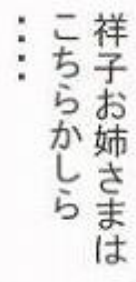 祥子お姉さまは
こちらかしら
‥‥